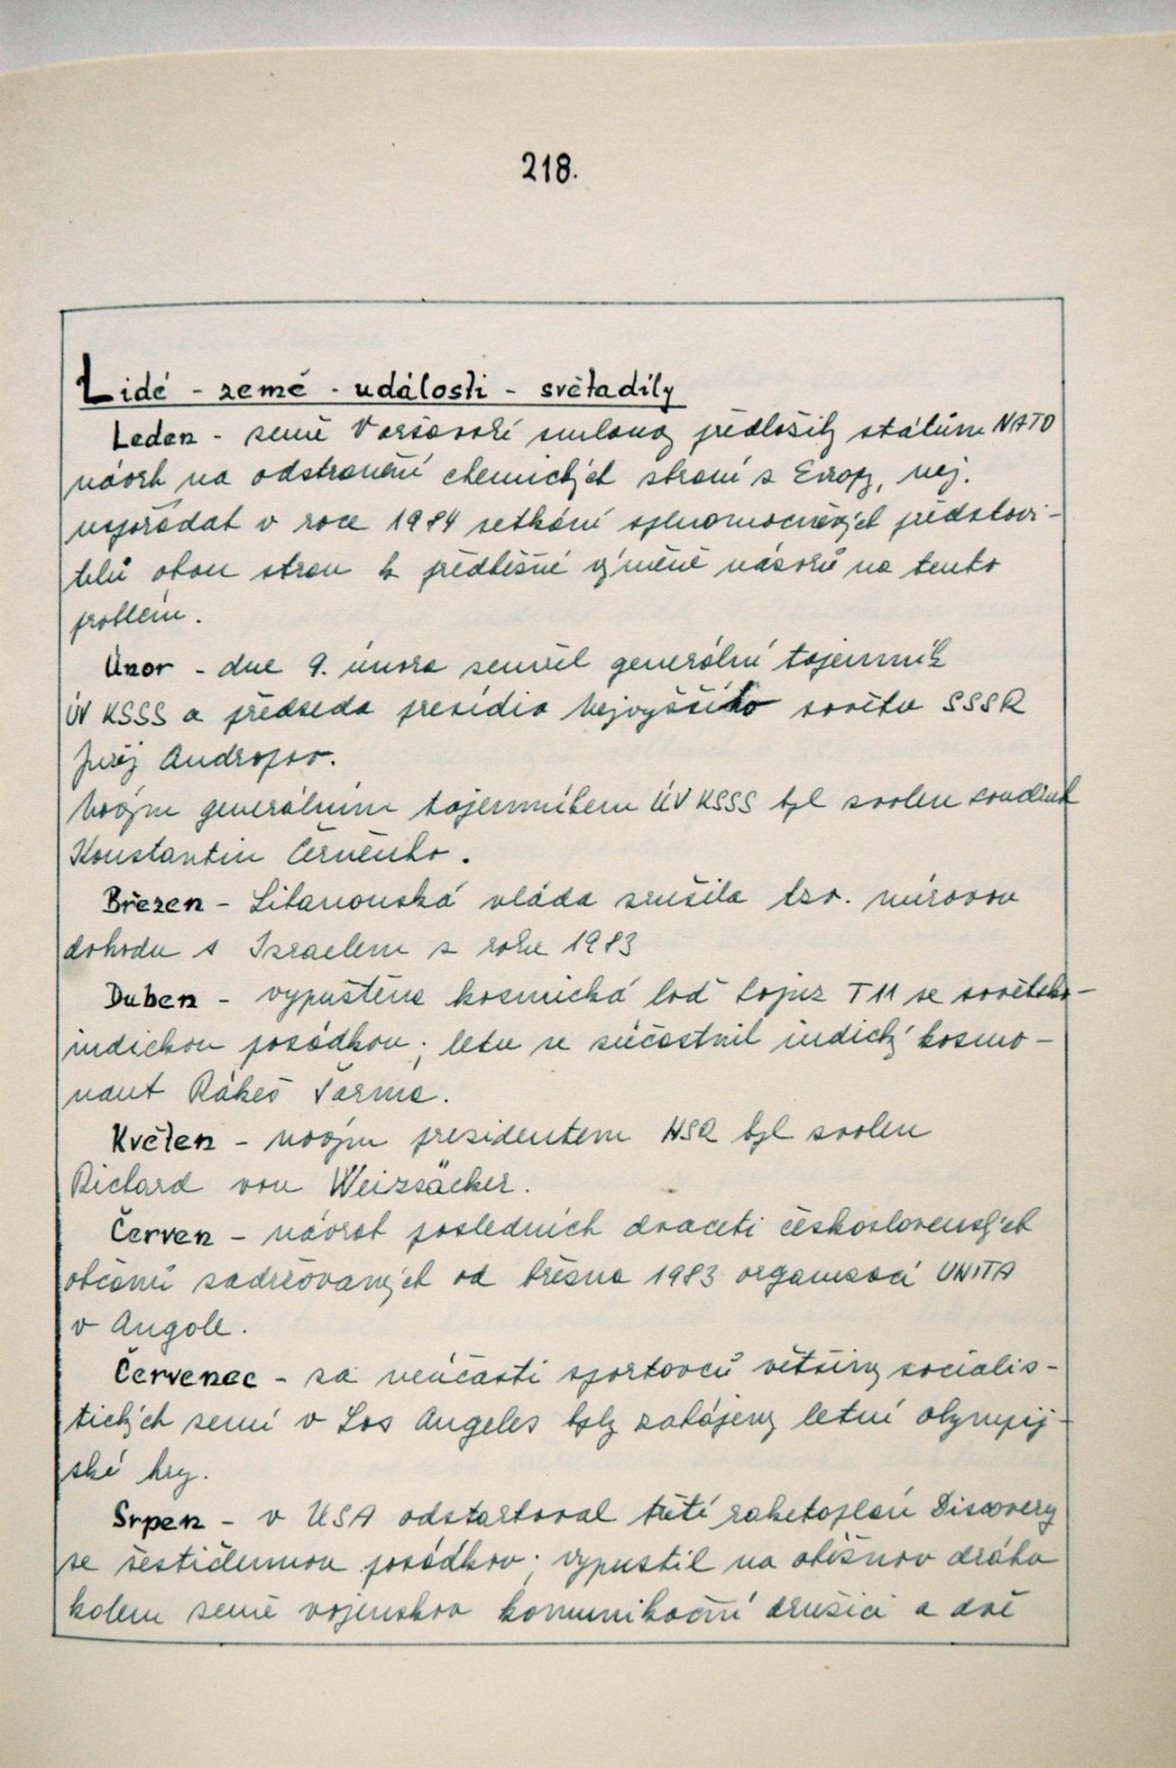 218.
Lidé - země - události - světadíly
Leden - země Varšavské smlouvy předložily státům NATO
návrh na odstranění chemických zbraní z Evropy, nej.
uspořádat v roce 1984 setkání zplnomocněných představi-
telů obou stran k předběžné výměně názorů na tento
problém.
Únor - dne 9. února zemřel generální tajemník
ÚV KSSS a předseda presidia Nejvyššího sovětu SSSR
Jurij Andropov.
Novým generálním tajemníkem ÚV KSSS byl zvolen soudruh
Konstantin Černěnko.
Březen - Libanonská vláda zrušila tzv. mírovou
dohodu s Izraelem z roku 1983
Duben - vypuštěna kosmická loď Sojuz T 11 se sovětsko-
indickou posádkou; letu se zúčastnil indický kosmo-
naut Rákeš Šarma.
Květen - novým presidentem NSR byl zvolen
Richard von Weizsäcker.
Červen - návrat posledních dvaceti československých
občanů zadržovaných od března 1983 organizací UNITA
v Angole.
Červenec - za neúčasti sportovců většiny socialis-
tických zemí v Los Angeles byly zahájeny letní olympij-
ské hry.
Srpen - v USA odstartoval třetí raketoplán Discovery
se šestičlennou posádkou; vypustil na oběžnou dráhu
kolem země vojenskou komunikační družici a dvě